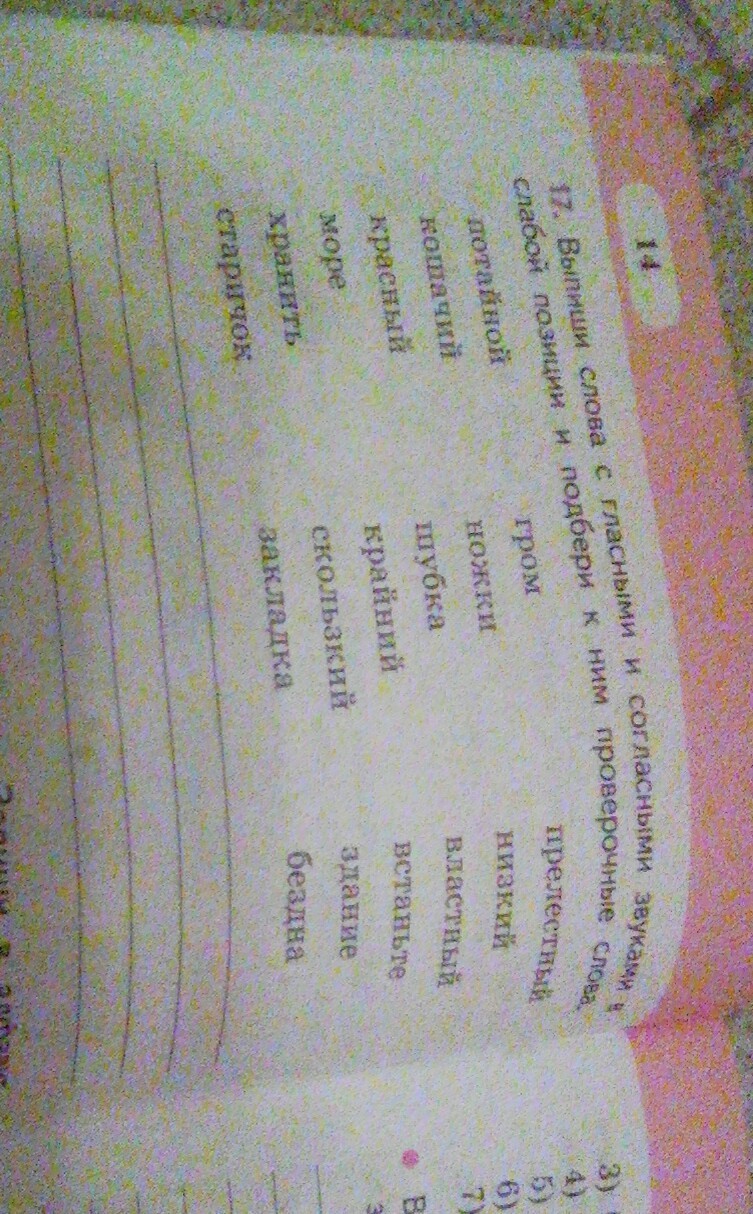 14
17. Выпиши слова с гласными и согласными звуками в
слабой позиции и подбери к ним проверочные слова.
потайной гром прелестный
кошачий ножки низкий
красный шубка властный
море крайний встаньте
хранить скользкий здание
старичок закладка бездна
3)
4)
5)
6)
7)
В